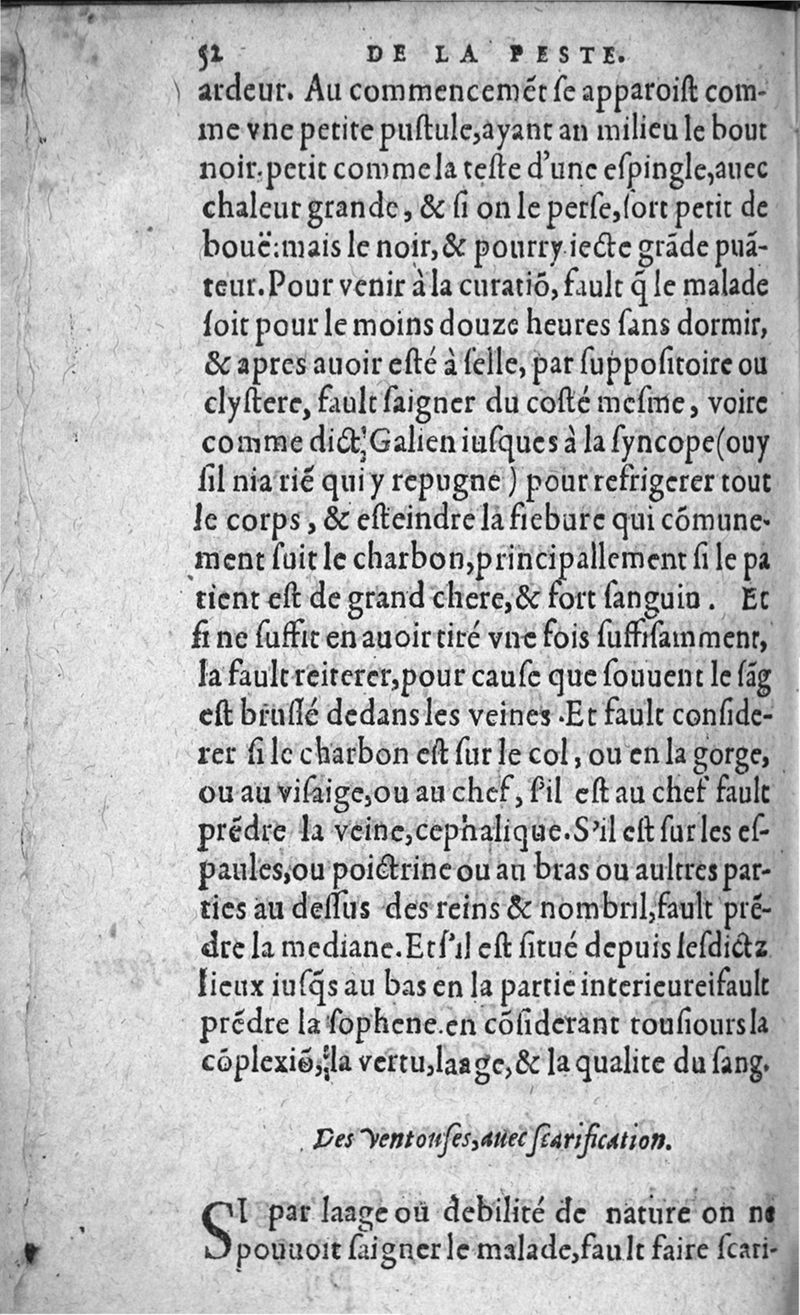 52 DE LA PESTE.
ardeur. Au commencemẽt ſe apparoiſt com-
me vne petite puſtule,ayant au milieu le bout
noir,petit comme la teſte d'une eſpingle,auec
chaleur grande, & ſi on le perſe,ſort petit de
bouë:mais le noir,& pourry iecte grãde puã-
teur.Pour venir à la curatiõ, fault q̃ le malade
ſoit pour le moins douze heures ſans dormir,
& apres auoir eſté à ſelle, par ſuppoſitoire ou
clyſtere, fault ſaigner du coſté meſme, voire
comme dict Galien iuſques à la ſyncope(ouy
ſil nia riẽ qui y repugne) pour refrigerer tout
le corps, & eſteindre la fiebure qui cõmune-
ment ſuit le charbon,principallement ſi le pa
tient eſt de grand chere,& fort ſanguin. Et
ſi ne ſuffit en auoir tiré vne fois ſuffiſamment,
la fault reiterer,pour cauſe que ſouuent le ſãg
eſt bruſlé dedans les veines.Et fault conſide-
rer ſi le charbon eſt ſur le col, ou en la gorge,
ou au viſaige,ou au chef, ſ'il eſt au chef fault
prẽdre la veine,cephalique.S'il eſt ſur les eſ-
paules,ou poictrine ou au bras ou aultres par-
ties au deſſus des reins & nombril,fault prẽ-
dre la mediane.Et ſ'il eſt ſitué depuis leſdictz
lieux iuſq̃s au bas en la partie interieureifault
prẽdre la ſophene.en cõſiderant touſiours la
cõplexiõ, la vertu,laage,& la qualite du ſang.
Des Ventouſes,auec ſcarification.
SI par laage ou debilité de nature on ne
pouuoit ſaigner le malade,fault faire ſcari-